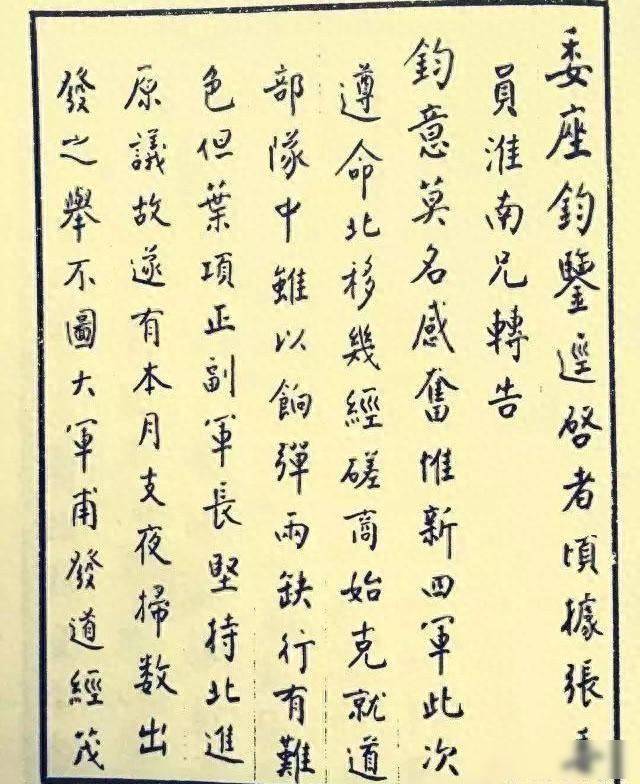 委座鈞鑒逕啓者頃據張
員淮南兄轉告
鈞意莫名感奮惟新四軍此次
遵命北移幾經磋商始克就道
部隊中雖以餉彈兩缺行有難
色但葉項正副軍長堅持北進
原議故遂有本月支夜掃数出
發之舉不圖大軍甫發道經茂